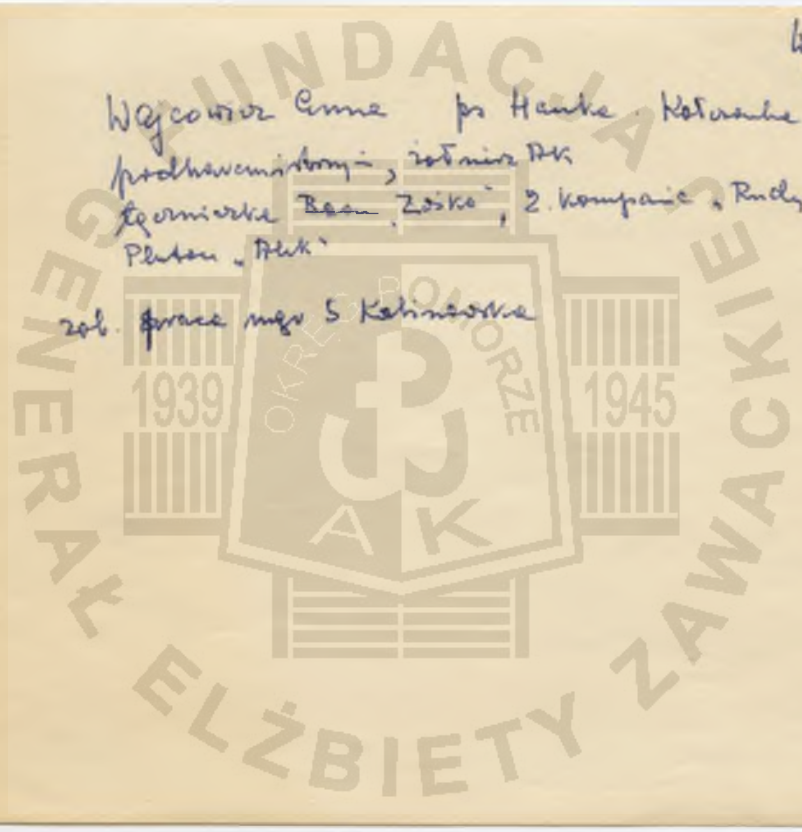 Wójcowicz Anna ps Hanka. Kołczanka
podharcmistrzyni, żołnierz AK
łączniczka Baon "Zośka", 2. kompania "Rudy
Pluton "Alek"
zob. praca mgr S Kalinowska
FUNDACJA GENERAŁ ELŻBIETY ZAWACKIEJ
OKRĘG POMORZE
1939 1945
AK